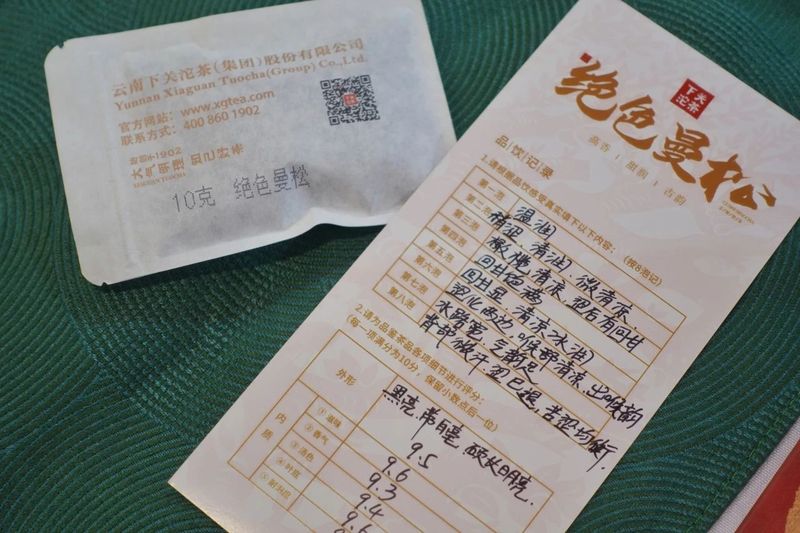 云南下关沱茶(集团)股份有限公司
Yunnan Xiaguan Tuocha(Group) Co.,Ltd.
官方网站：www.xgtea.com
联系方式：400 860 1902
大气明理
10克 绝色曼松
下关
沱茶
绝色曼松
高香 | 蜜韵 | 古韵
品/饮/记/录
1.请根据品饮感受真实填下以下内容：(按8泡记)
第一泡 温润
第二泡 稍涩，清润，微清凉，
第三泡 橄榄清凉，涩后有回甘
第四泡 回甘饱满
第五泡 回甘显 清凉(冰油)
第六泡 两边 喉部清凉，出喉韵
第七泡 水路宽，气韵足
第八泡 背部微汗，涩已退，苦涩均衡．
2.请为品鉴茶品各项细节进行评分：
(每一项满分为10分，保留小数点后一位)
外形 黑亮，带白毫 明亮．
内质
①滋味 9.5
②香气 9.6
③汤色 9.3
④叶底 9.4
⑤耐泡度